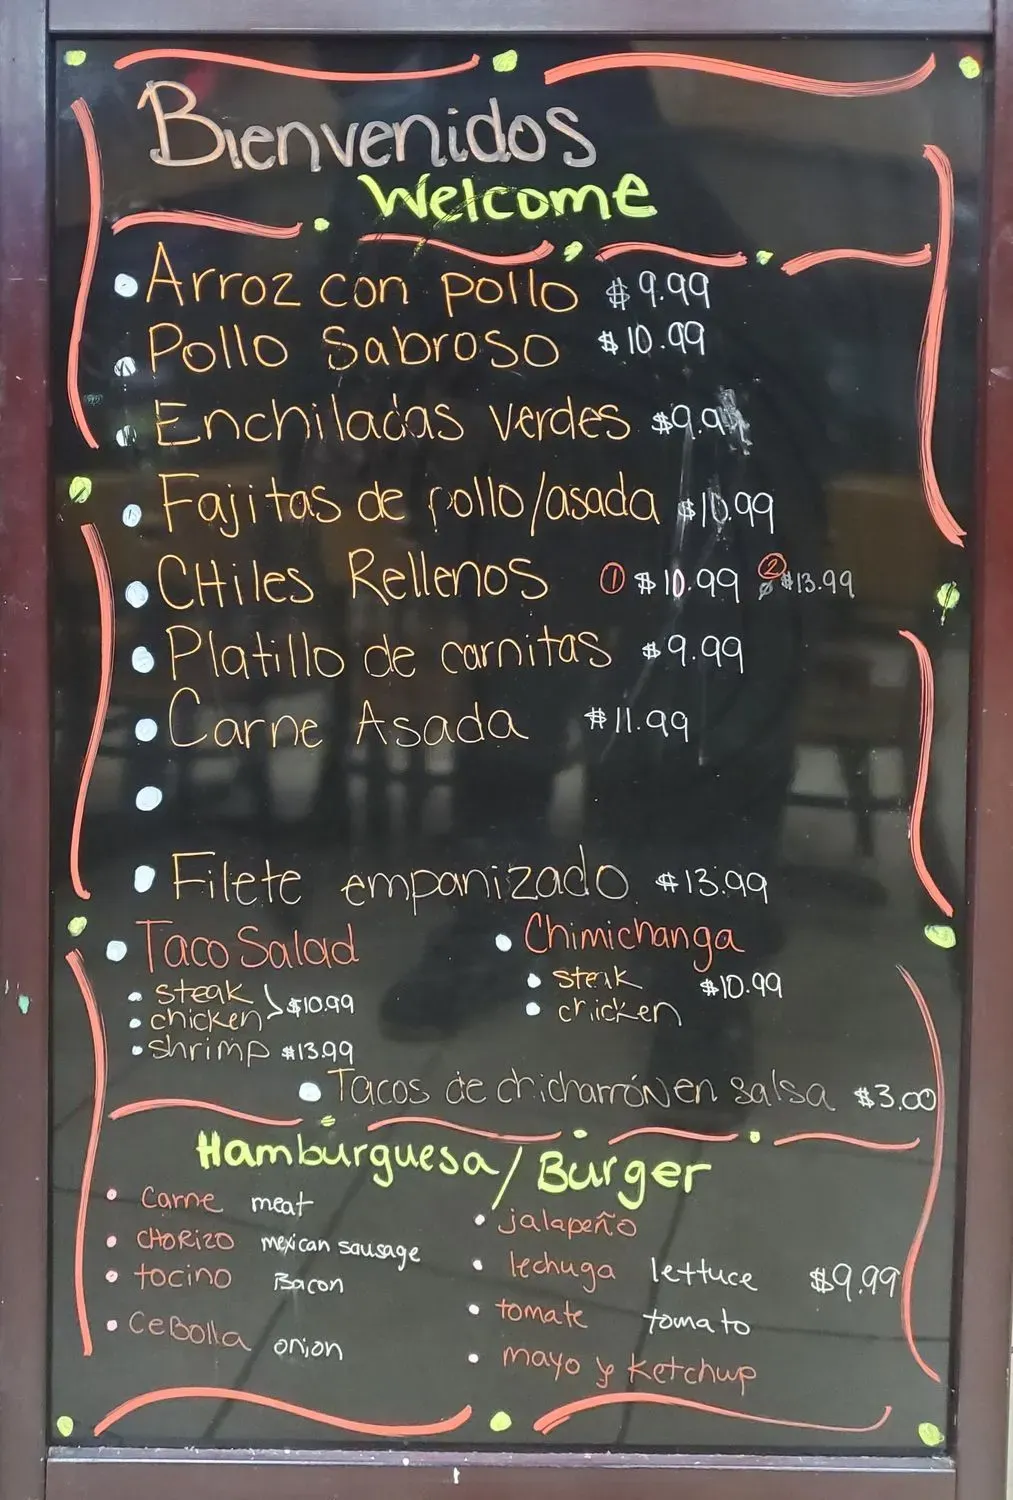 Bienvenidos
Welcome
Arroz con pollo $9.99
Pollo Sabroso $10.99
Enchiladas verdes $9.99
Fajitas de pollo/asada $10.99
CHiles Rellenos ① $10.99 ② $13.99
Platillo de carnitas $9.99
Carne Asada $11.99
Filete empanizado $13.99
Taco Salad
steak
chicken $10.99
shrimp $13.99
Chimichanga
steak $10.99
chicken
Tacos de chicharrón en salsa $3.00
Hamburguesa/Burger
Carne meat
CHORIZO mexican sausage
tocino Bacon
CeBolla onion
jalapeño
lechuga lettuce $9.99
tomate tomato
mayo y Ketchup